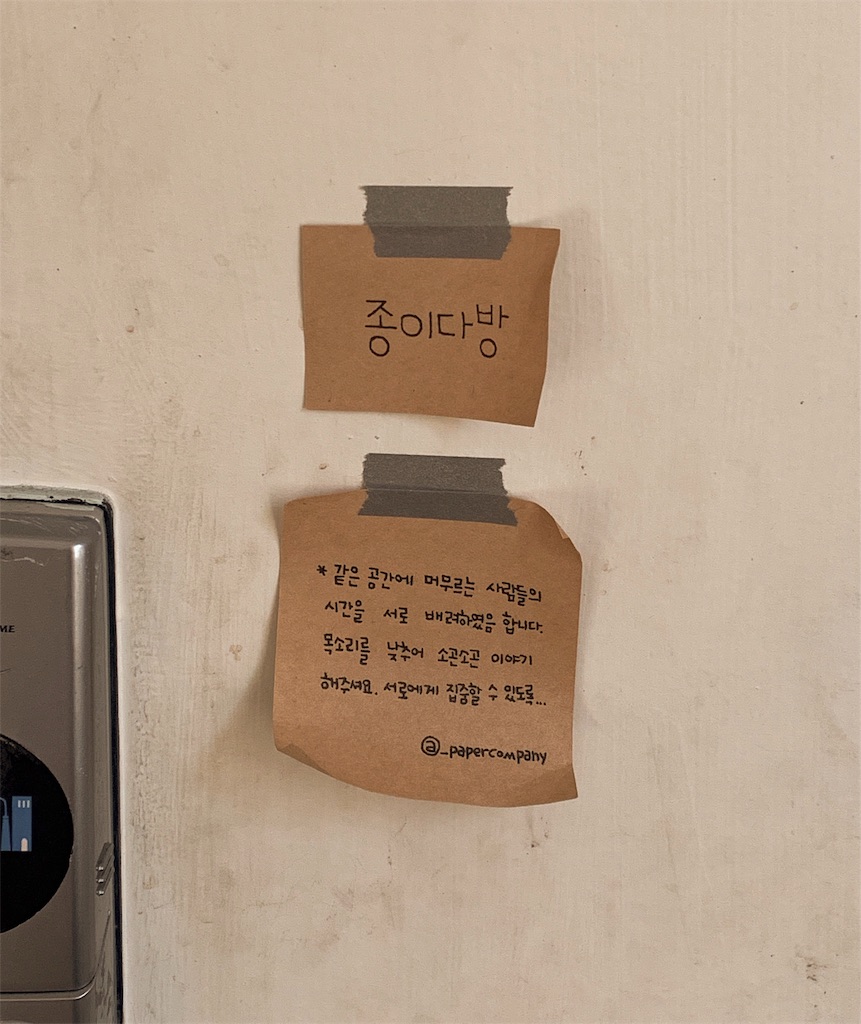 종이다방
* 같은 공간에 머무르는 사람들의
시간을 서로 배려하였음 합니다.
목소리를 낮추어 소곤소곤 이야기
해주셔요. 서로에게 집중할 수 있도록...
@_papercompany
ME